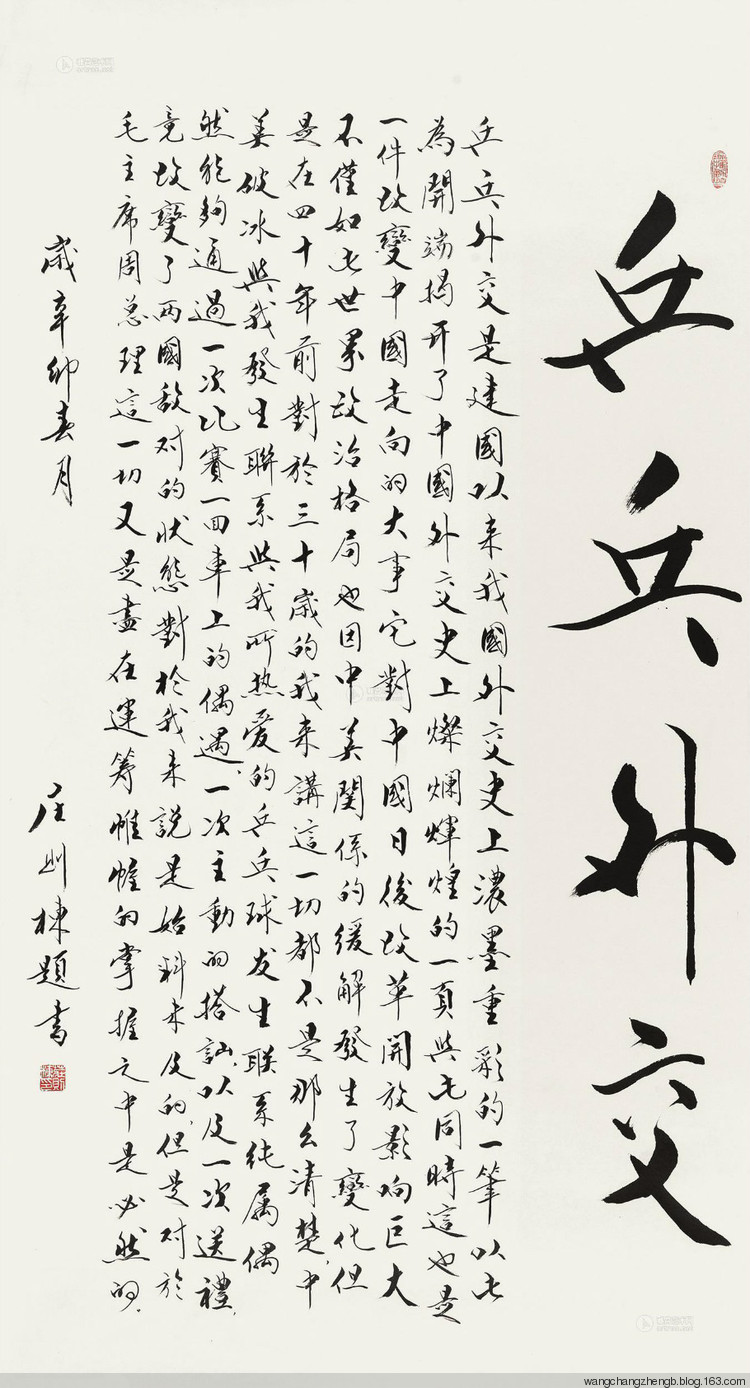 乒乓外交
乒乓外交是建國以来我國外交史上濃墨重彩的一筆以此
為開端揭开了中國外交史上燦爛輝煌的一頁與此同時這也是
一件改變中國走向的大事它對中國日後改革開放影响巨大
不僅如此世界政治格局也因中美関係的緩解發生了變化但
是在四十年前對於三十歲的我来講這一切都不是那么清楚，中
美破冰與我發生聯系與我所热爱的乒乓球发生联系纯属偶
然能夠通過一次比賽一回車上的偶遇、一次主動的搭訕、以及一次送禮，
竟改變了两國敌对的状態對於我来説是始料未及的，但是对於
毛主席周总理這一切又是盡在運筹帷幄的掌握之中是必然的，
歲辛卯春月
庄則棟題書
wangchangzhengb.blog.163.com